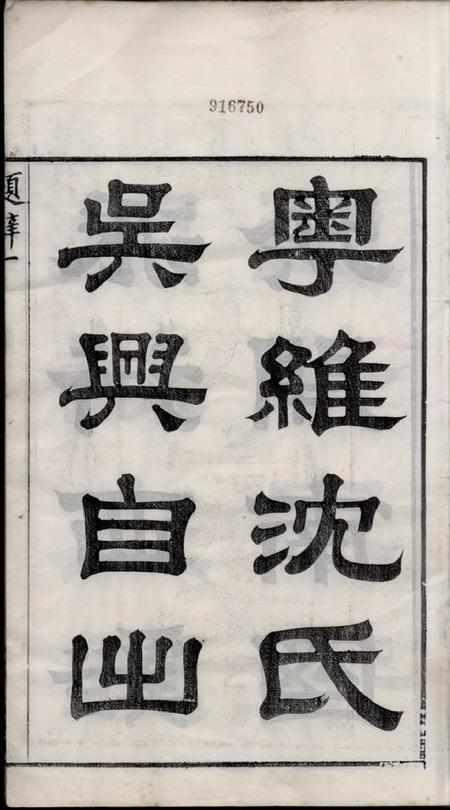 916750
粵維沈氏
吳興自出
題辭一